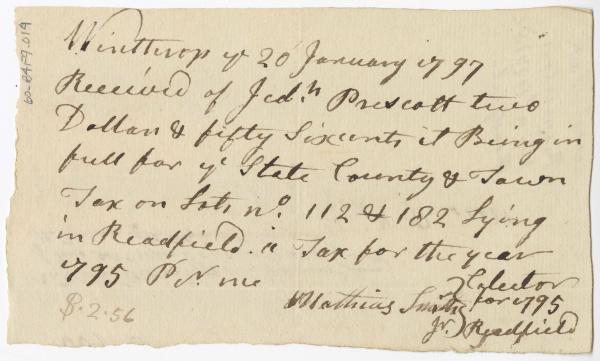 Winthrop ye 20 January 1797
Received of Jedh Prescott two
Dollars & fifty Sixcents it Being in
full for ye State County & Town
Tax on Lots no. 112 & 182 Lying
in Readfield. a Tax for the year
1795 Pr me
Mathias Smith Jr. } Colector
for 1795
Readfield
$.2.56
60-84F9.019